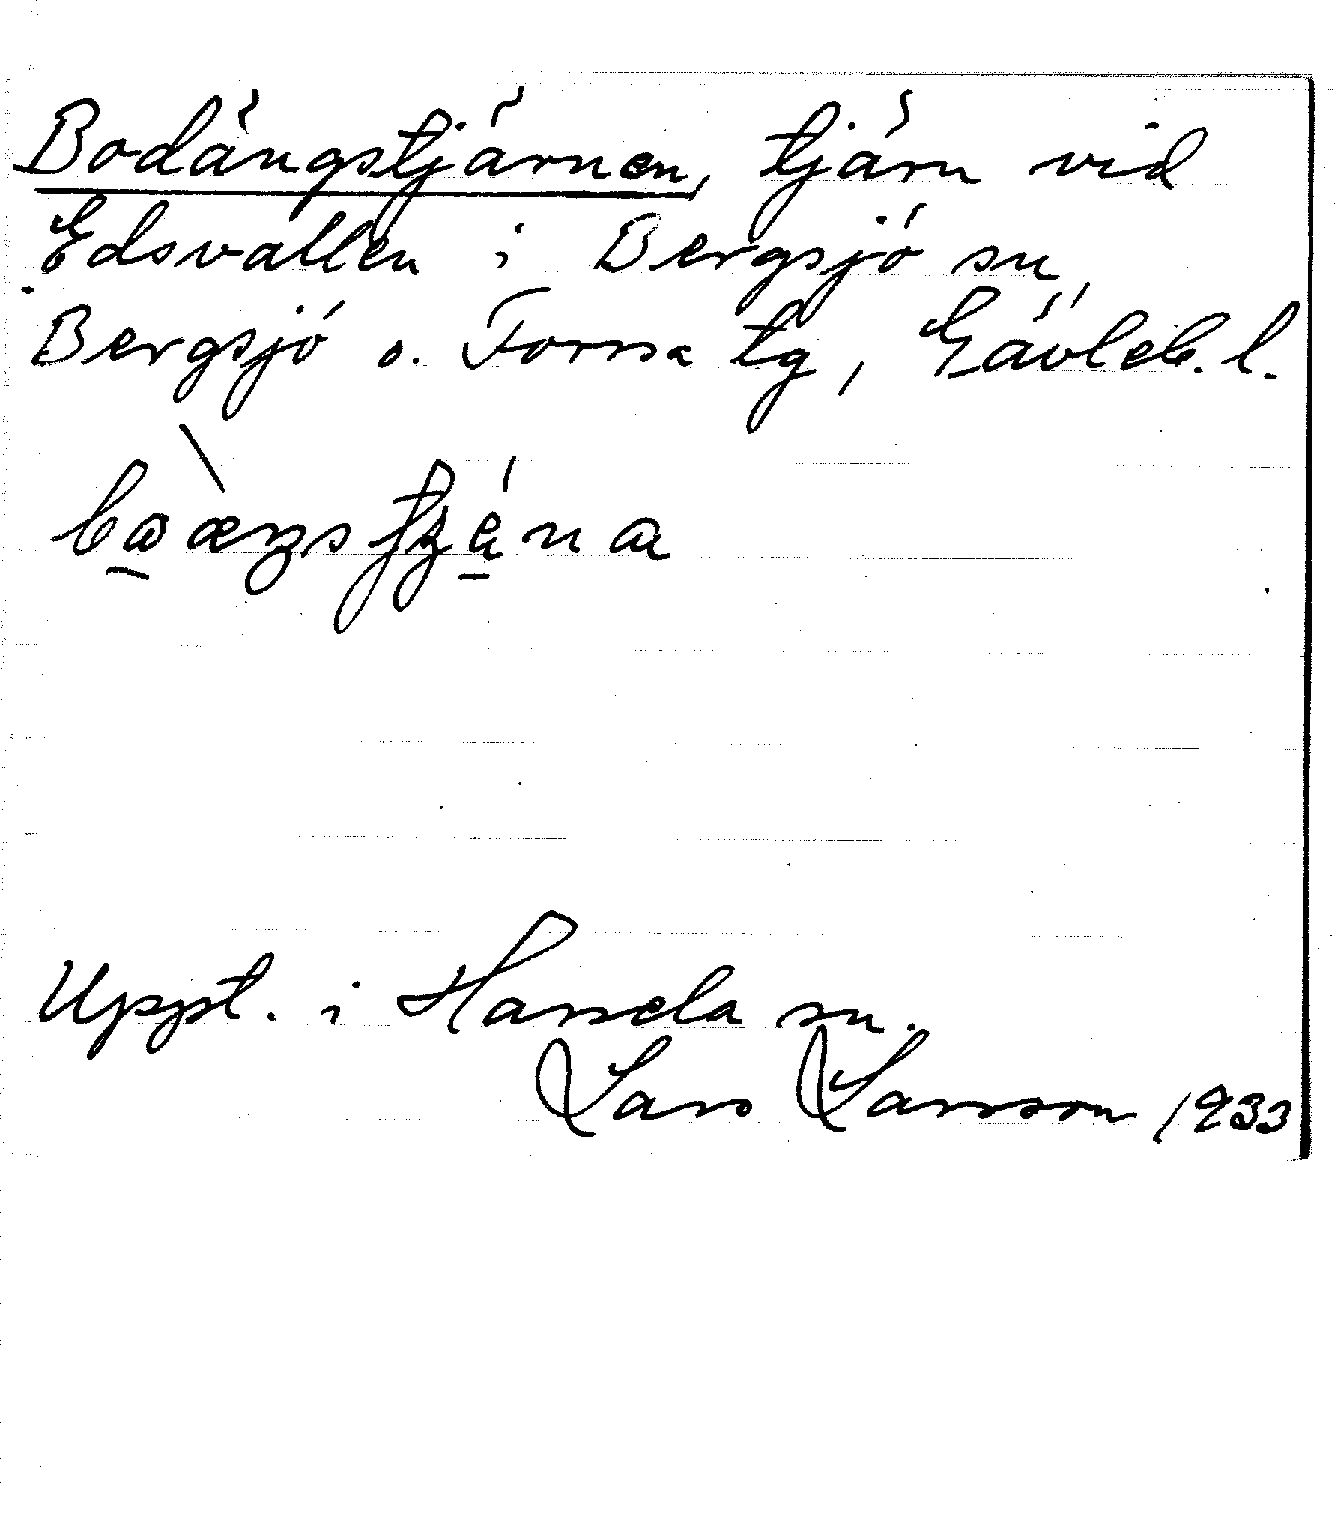 Bodängstjärnen, tjärn vid
Edsvallen i Bergsjö sn
Bergsjö o. Forsa tg, Gävleb. l.
Uppt. i Hassela sn.
Lars Larsson 1933